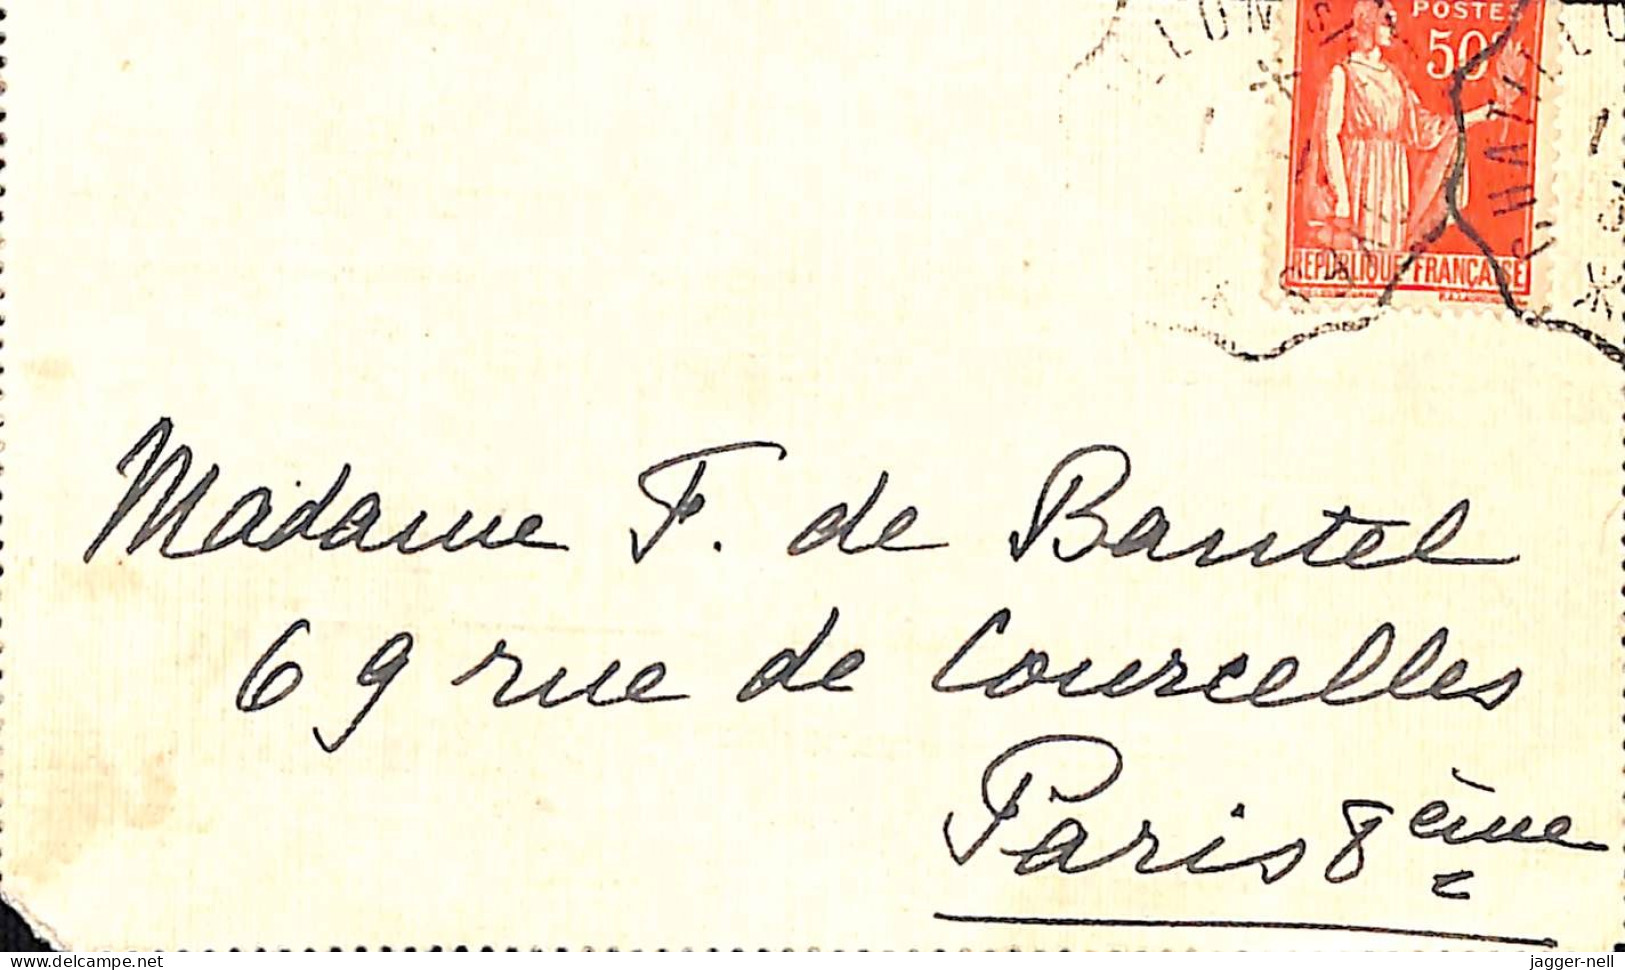 POSTES
50c
REPUBLIQUE FRANÇAISE
Madame F. de Bantel
69 rue de Courcelles
Paris 8ème
delcampe.net
jagger-nell